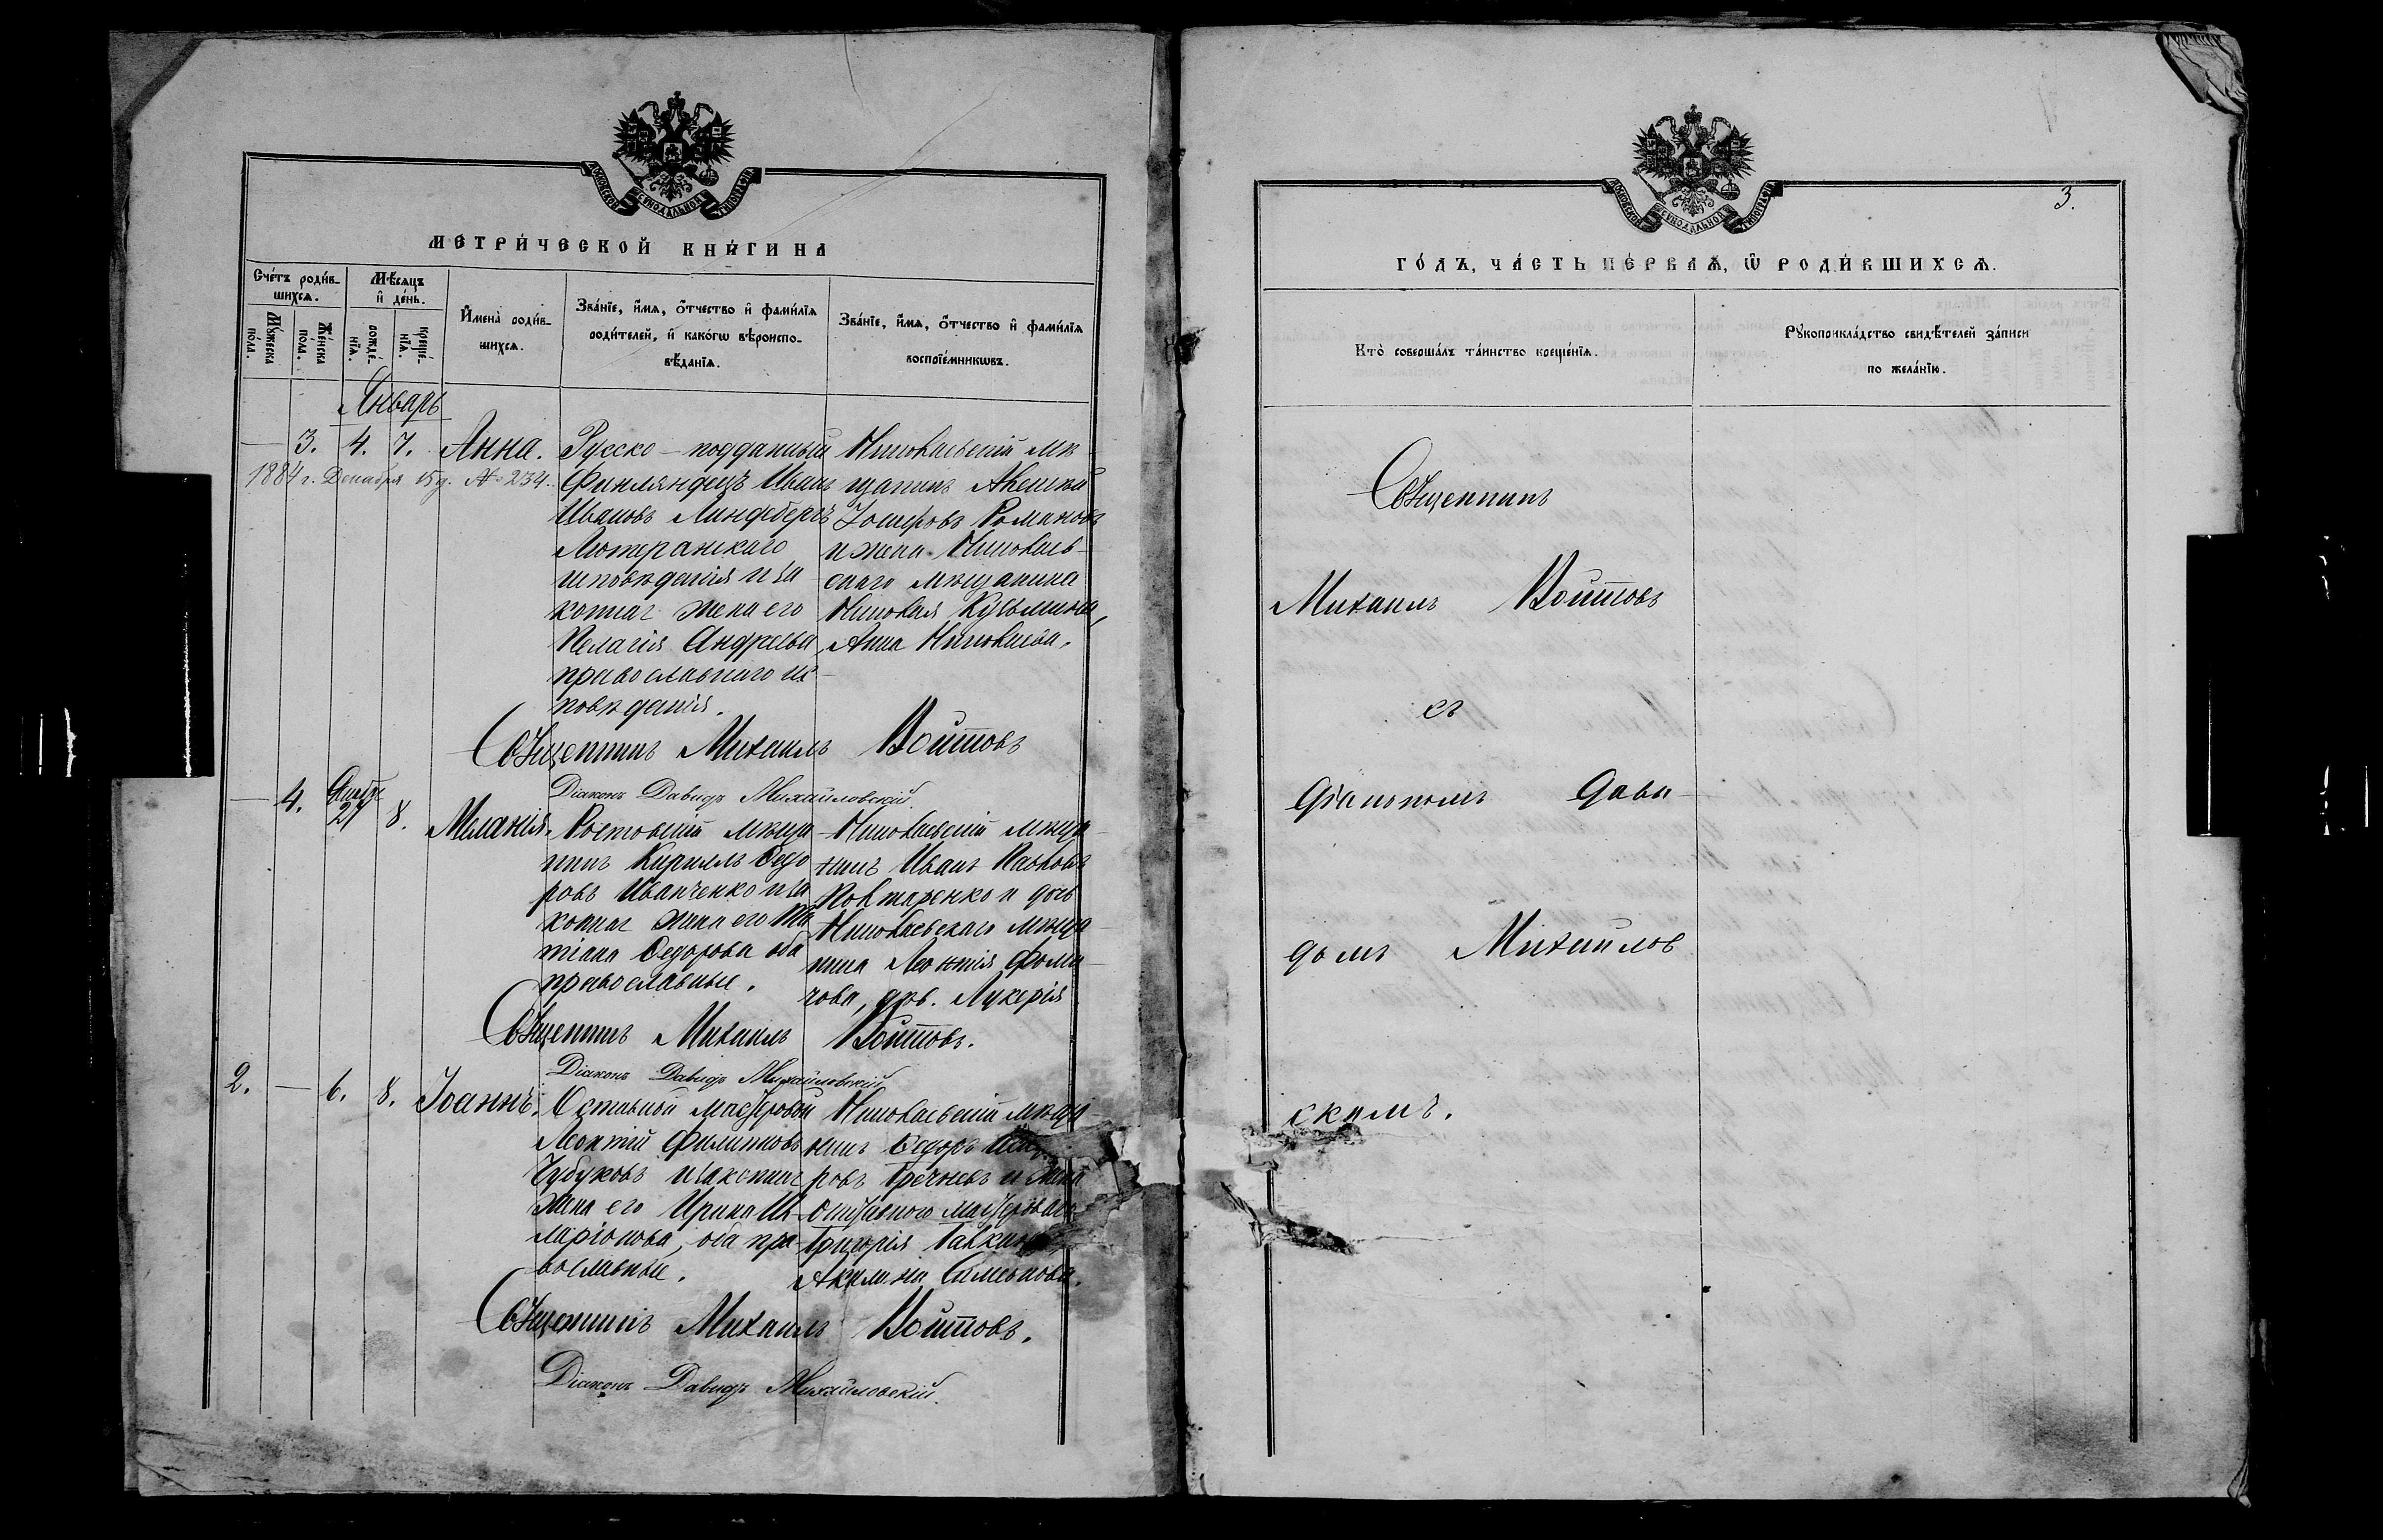 МОСКОВСКОЙ СѴНОДАЛЬНОЙ ТИПОГРАФІИ
МЕТРИ́ЧЕСКОЙ КНИ́ГИ НА
Сче́тъ роди́в-
шихсѧ.
Мѣ́сѧцъ
и҆ де́нь.
Мꙋ́жеска
по́ла.
Же́нска
по́ла.
рожде́-
нїѧ.
креще́-
нїѧ.
И҆мена̀ роди́в-
шихсѧ.
Зва́нїе, и҆́мѧ, ѻ҆́тчество и҆ фами́лїѧ
роди́телей, и҆ како́гѡ вѣроиспо-
вѣ́данїѧ.
Зва́нїе, и҆́мѧ, ѻ҆́тчество и҆ фами́лїѧ
воспрїе́мникѡвъ.
Январь
— 3. 4. 7. Анна.
1884 г. Декабря 15 д. № 234.
Русско-подданный
Финляндецъ Иванъ
Ивановъ Линдебергъ
Лютеранскаго
исповѣданія и за
конная жена его
Пелагія Андреева,
православнаго ис-
повѣданія.
Николаевскій мѣ
щанинъ Алексѣй
Іосифовъ Романовъ
и жена Николаев-
скаго мѣщанина
Николая Кузьмина,
Анна Николаева.
Священникъ Михаилъ Войтовъ
Діаконъ Давидъ Михайловскій.
— 4. Декабр. 27 8. Меланія.
Ростовскій мѣща-
нинъ Кириллъ Ѳедо
ровъ Иванченко и за
конная жена его Та
тіана Ѳедорова оба
православные.
Николаевскій мѣща-
нинъ Иванъ Павловъ
Повтаренко и дочь
Николаевскаго мѣща-
нина Леонтія Фоми-
чова, дѣв. Лукерія
Священникъ Михаилъ Войтовъ.
Діаконъ Давидъ Михайловскій
2. — 6. 8. Іоаннъ.
Отставной мастеровой
Леонтій Филиповъ
Чубуковъ и законная
жена его Ирина Ил-
ларіонова, оба пра-
вославные.
Николаевскій мѣща-
нинъ Ѳедоръ
ровъ Гречневъ и жена
отставного мастероваго
Григорія
Акилина Симеонова.
Священникъ Михаилъ Войтовъ.
Діаконъ Давидъ Михайловскій.
МОСКОВСКОЙ СѴНОДАЛЬНОЙ ТИПОГРАФІИ
3.
ГО́ДЪ, ЧА́СТЬ ПЕ́РВАѦ, Ѽ РОДИ́ВШИХСѦ.
Кто̀ соверша́лъ та́инство креще́нїѧ.
Рꙋкоприкла́дство свидѣ́телей за́писи
по жела́нїю.
Священникъ
Михаилъ Войтовъ
съ
діакономъ Дави-
домъ Михайлов
скимъ.